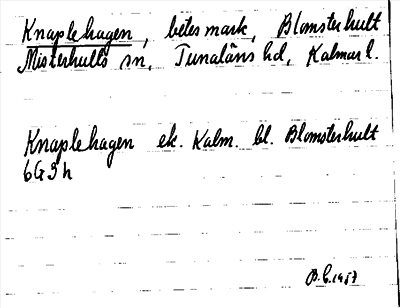 Knaplehagen, betesmark, Blomsterhult
Misterhults sn, Tunaläns hd, Kalmar l.
Knaplehagen ek. Kalm. bl. Blomsterhult
6G9h